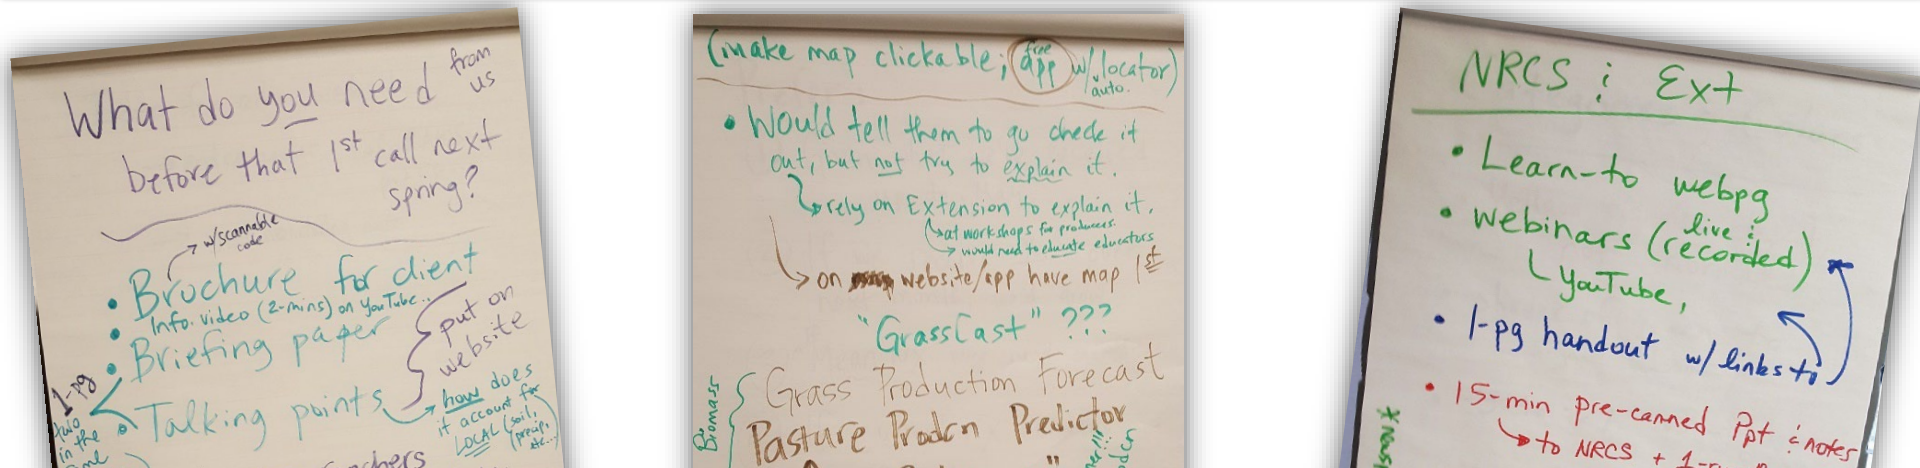 What do you need from us
before that 1st call next
spring?
w/scannable
code
• Brochure for client
• Info. video (2-mins) on YouTube..
• Briefing paper
put on
website
1-pg
• Talking points
how does
it account for
LOCAL (soil,
precip,
etc...)
two
in the
(make map clickable; free app w/ auto. locator)
• Would tell them to go check it
out, but not try to explain it.
rely on Extension to explain it.
at workshops for producers.
would need to educate educators
on website/app have map 1st
"GrassCast" ???
Biomass
Grass Production Forecast
Pasture Prodcn Predictor
NRCS & Ext
• Learn-to webpg
• webinars (live & recorded)
YouTube,
• 1-pg handout w/ links to
• 15-min pre-canned Ppt & notes
to NRCS +